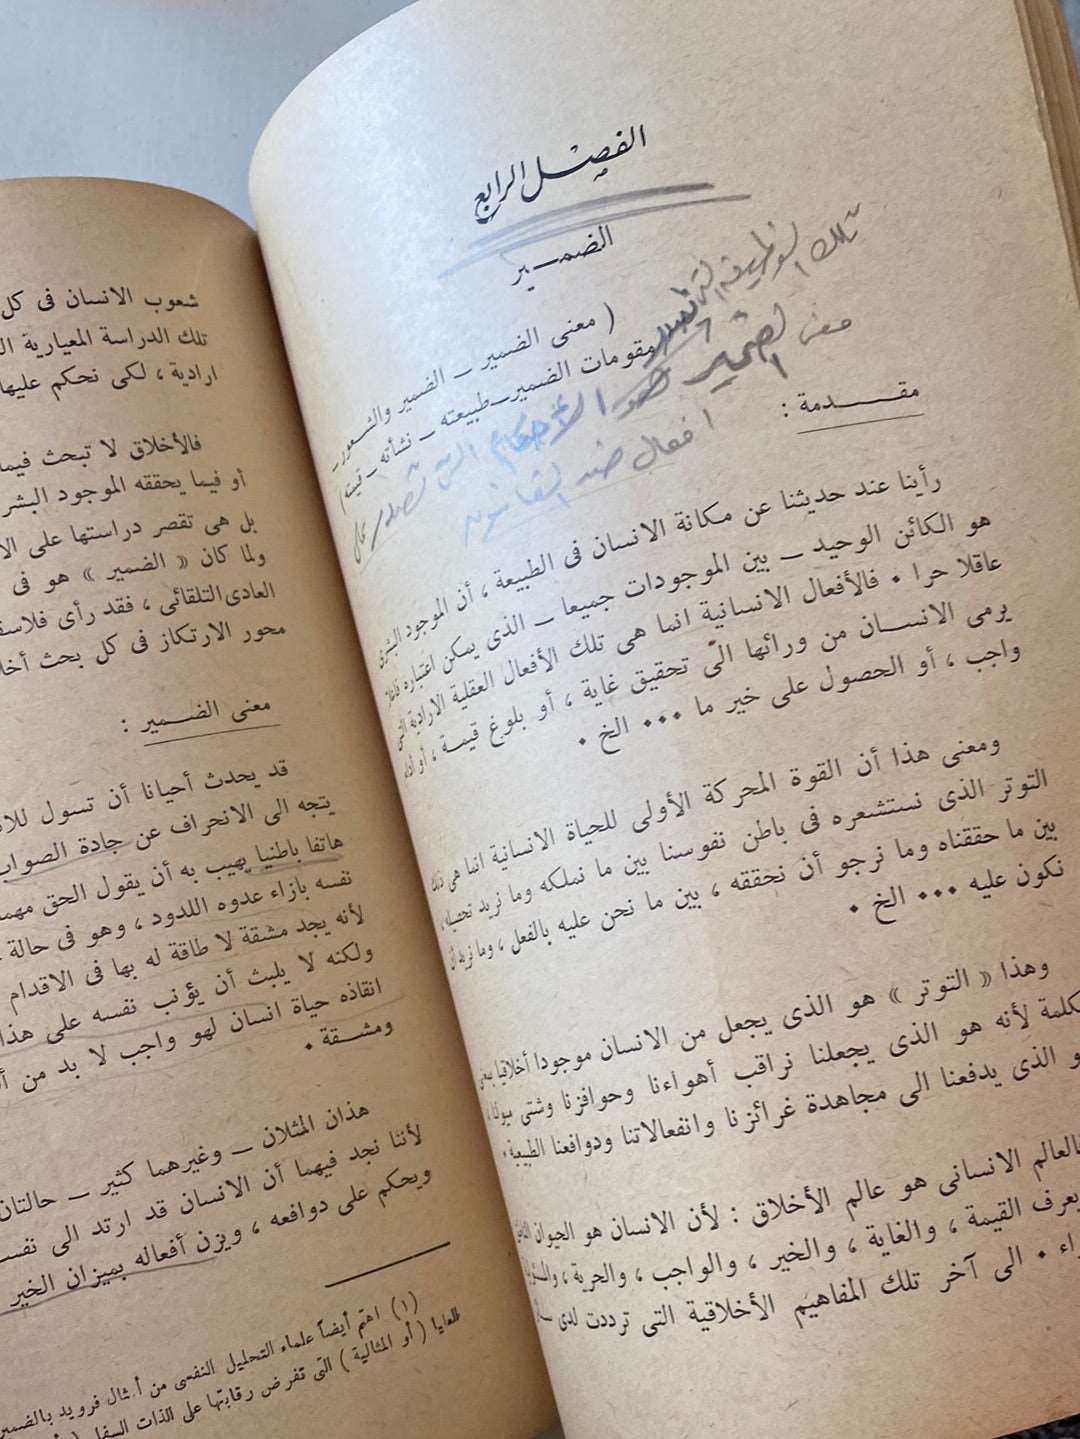 الفصل الرابع
الضمير
تلك الوظيفة التى
معنى الضمير هو الأحكام التى تصدر على
افعال ضد القانون
( معنى الضمير — الضمير والشعور —
مقومات الضمير — طبيعته — نشأته — قيمته )
مقدمة :
رأينا عند حديثنا عن مكانة الانسان فى الطبيعة ، أن الموجود البشرى
هو الكائن الوحيد — بين الموجودات جميعا — الذى يمكن اعتباره فاعلا
عاقلا حرا ٠ فالأفعال الانسانية انما هى تلك الأفعال العقلية الارادية التى
يرمى الانسان من ورائها الى تحقيق غاية ، أو بلوغ قيمة ، أو أداء
واجب ، أو الحصول على خير ما ٠٠٠ الخ ٠
ومعنى هذا أن القوة المحركة الأولى للحياة الانسانية انما هى ذلك
التوتر الذى نستشعره فى باطن نفوسنا بين ما نملكه وما نريد تحصيله ،
بين ما حققناه وما نرجو أن نحققه ، بين ما نحن عليه بالفعل ، وما نريد أن
نكون عليه ٠٠٠ الخ ٠
وهذا « التوتر » هو الذى يجعل من الانسان موجودا أخلاقيا بمعنى
كلمة لأنه هو الذى يجعلنا نراقب أهواءنا وحوافزنا وشتى ميولنا ،
و الذى يدفعنا الى مجاهدة غرائزنا وانفعالاتنا ودوافعنا الطبيعية ٠
فالعالم الانسانى هو عالم الأخلاق : لأن الانسان هو الحيوان
يعرف القيمة ، والغاية ، والخير ، والواجب ، والحرية ،
الى آخر تلك المفاهيم الأخلاقية التى ترددت لدى
شعوب الانسان فى كل
تلك الدراسة المعيارية
ارادية ، لكى نحكم عليها
فالأخلاق لا تبحث فيما
أو فيما يحققه الموجود البشر
بل هى تقصر دراستها على
ولما كان « الضمير » هو فى
العادى التلقائى ، فقد رأى فلاسفة
محور الارتكاز فى كل بحث أخلا
معنى الضمير :
قد يحدث أحيانا أن تسول
يتجه الى الانحراف عن جادة الصواب
هاتفا باطنيا يهيب به أن يقول الحق مهما
نفسه بازاء عدوه اللدود ، وهو فى حالة
لأنه يجد مشقة لا طاقة له بها فى الاقدام
ولكنه لا يلبث أن يؤنب نفسه على هذا
انقاذه حياة انسان لهو واجب لا بد من
ومشقة ٠
هذان المثلان — وغيرهما كثير — حالتان
لأننا نجد فيهما أن الانسان قد ارتد الى نفسه
ويحكم على دوافعه ، ويزن أفعاله بميزان الخير
(١) اهتم أيضاً علماء التحليل النفسى من أمثال فرويد بالضمير
العليا ( أو المثالية ) التى تفرض رقابتها على الذات السفلى